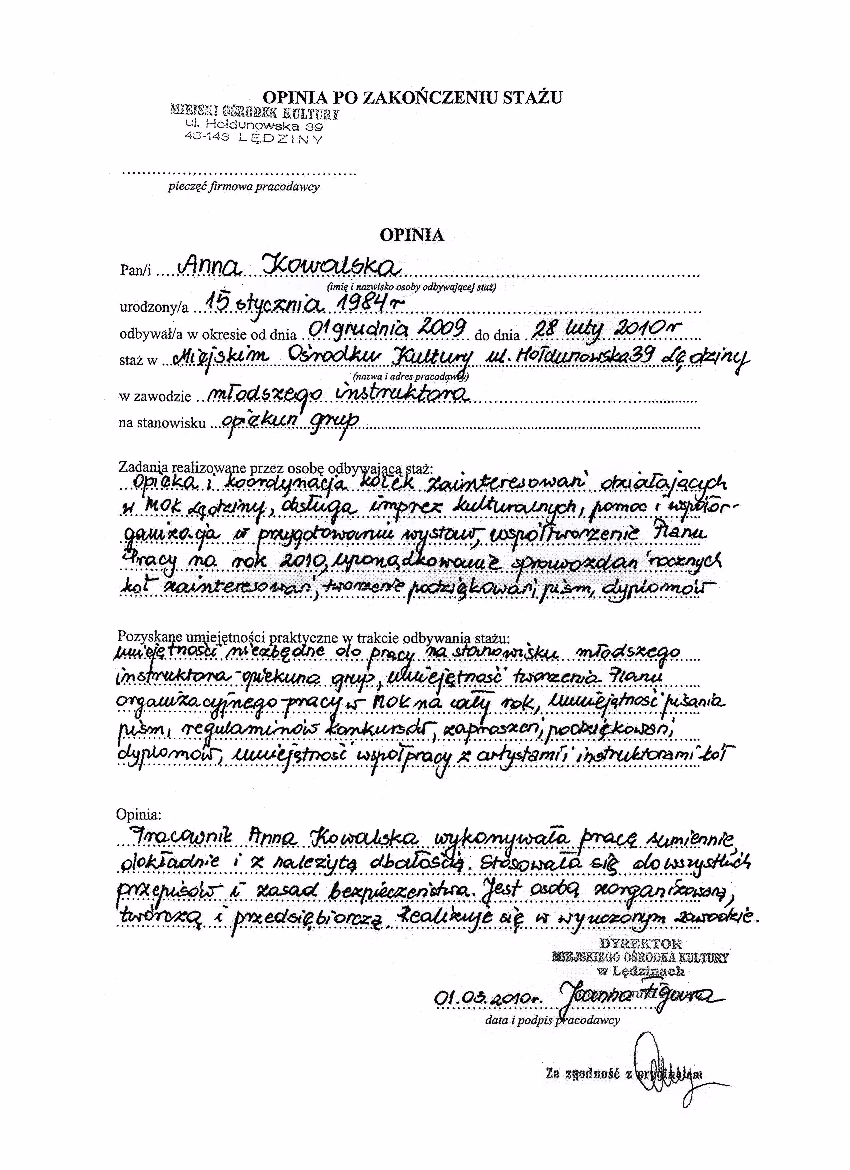 OPINIA PO ZAKOŃCZENIU STAŻU
MIEJSKI OŚRODEK KULTURY
ul. Hołdunowska 39
43-143 LĘDZINY
pieczęć firmowa pracodawcy
OPINIA
Pan/i Anna Kowalska
(imię i nazwisko osoby odbywającej staż)
urodzony/a 15 stycznia 1984 r
odbywał/a w okresie od dnia 01 grudnia 2009 do dnia 28 luty 2010 r
staż w Miejskim Ośrodku Kultury ul. Hołdunowska 39 Lędziny
(nazwa i adres pracodawcy)
w zawodzie młodszego instruktora
na stanowisku opiekun grup
Zadania realizowane przez osobę odbywającą staż:
Opieka i koordynacja kółek zainteresowań działających
w MOK Lędziny, obsługa imprez kulturalnych, pomoc i współor-
ganizacja w przygotowaniu wystaw, współtworzenie Planu
Pracy na rok 2010, uporządkowanie sprawozdań rocznych
kół zainteresowań, tworzenie podziękowań, pism, dyplomów
Pozyskane umiejętności praktyczne w trakcie odbywania stażu:
umiejętności niezbędne do pracy na stanowisku młodszego
instruktora - opiekuna grup, umiejętność tworzenia Planu
organizacyjnego pracy w MOK na cały rok, umiejętność pisania
pism, regulaminów konkursów, zaproszeń, podziękowań,
dyplomów, umiejętność współpracy z artystami, instruktorami kół
Opinia:
Pracownik Anna Kowalska wykonywała pracę sumiennie,
dokładnie i z należytą dbałością. Stosowała się do wszystkich
przepisów i zasad bezpieczeństwa. Jest osobą zorganizowaną,
twórczą i przedsiębiorczą. Realizuje się w wyuczonym zawodzie.
DYREKTOR
MIEJSKIEGO OŚRODKA KULTURY
w Lędzinach
01.03.2010r. Joanna Figura
data i podpis pracodawcy
Za zgodność z oryginałem